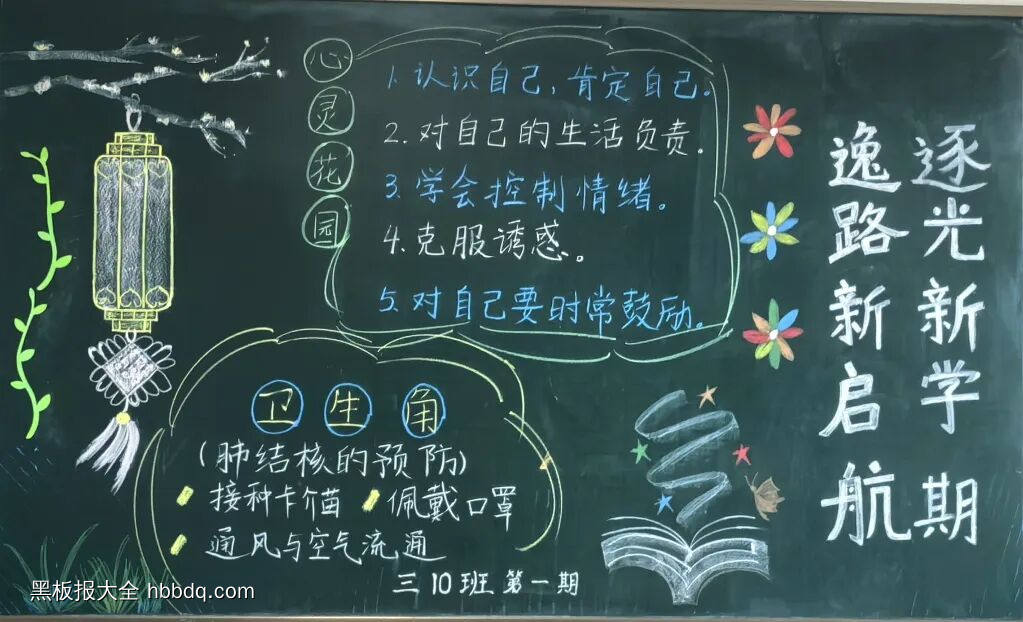 心灵花园
1.认识自己，肯定自己。
2.对自己的生活负责。
3.学会控制情绪。
4.克服诱惑。
5.对自己要时常鼓励。
逐光新学期
逸路新启航
卫生角
(肺结核的预防)
接种卡介苗 佩戴口罩
通风与空气流通
三10班 第一期
黑板报大全 hbbdq.com